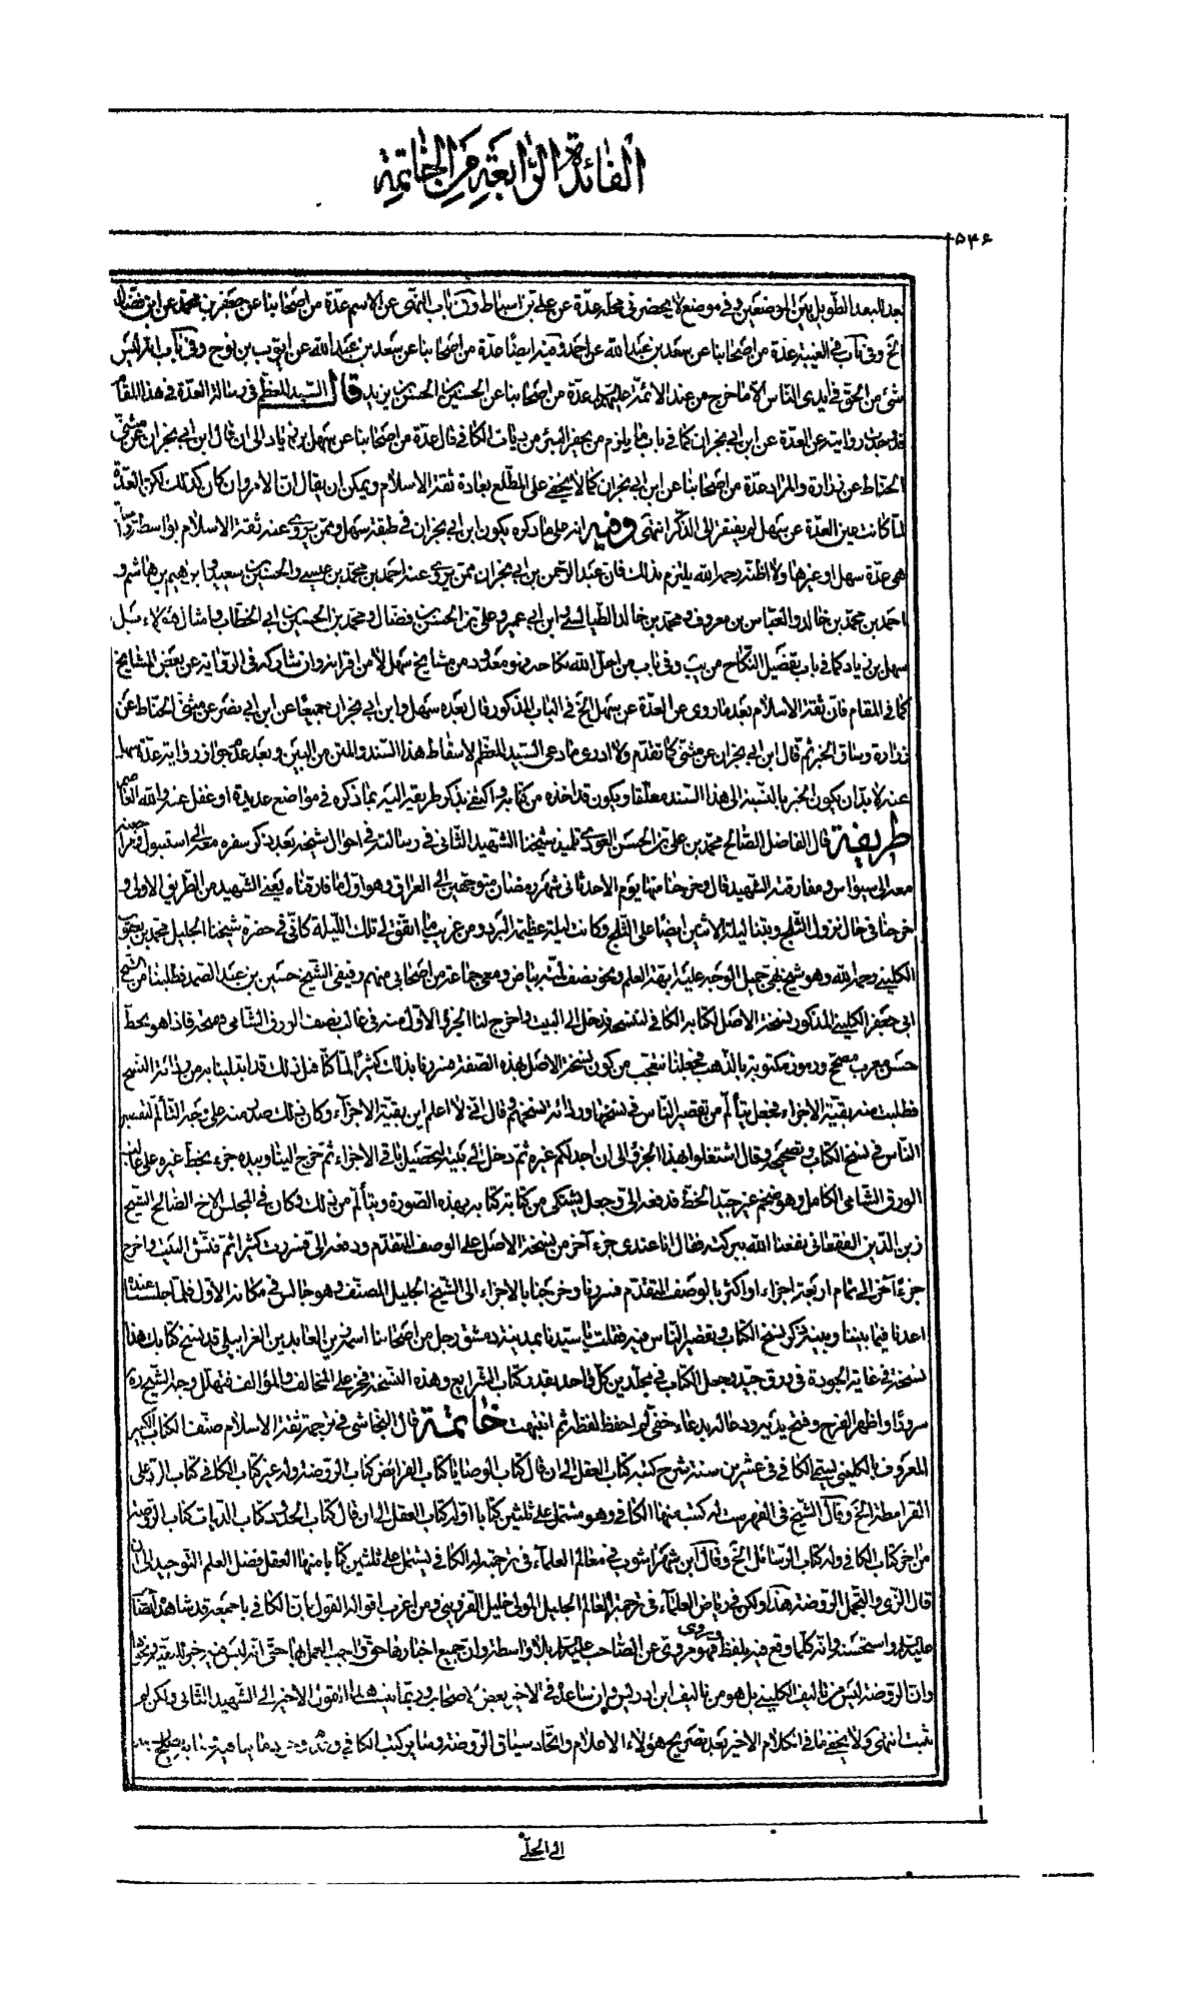 الفائدة الرابعة من الخاتمة
۵۴۶
بعد البعد الطويل بين الموضعين وفي موضع لا يحضرني محله عدة عن علي بن اسباط وفي باب النهي عن الاسم عدة من اصحابنا عن جعفر بن محمد عن ابن فضال
الخ وفي باب في الغيبة عدة من اصحابنا عن سعد بن عبد الله عن احمد وفيه ايضا عدة من اصحابنا عن سعد بن عبد الله عن ايوب بن نوح وفي باب انه ليس
شئ من الحق في ايدي الناس الا ما خرج من عند الائمة عليهم عدة من اصحابنا عن الحسين بن الحسن بن يزيد قال السيد المعظم في رسالة العدة في هذا المقام
قد وجدت روايته عن العدة عن ابن ابي نجران كما في باب ما يلزم من يحفر البئر من ديات الكافي قال عدة من اصحابنا عن سهل بن زياد الى ان قال ابن ابي نجران عن مثنى
الحناط عن زرارة والمراد عدة من اصحابنا عن ابن ابي نجران كما لا يخفى على المطلع بعادة ثقة الاسلام ويمكن ان يقال ان الامر وان كان كذلك لكن العدة
لما كانت عين العدة عن سهل لم يفتقر الى الذكر انتهى وفيه انه على ما ذكره يكون ابن ابي نجران في طبقة سهل وممن يروي عنه ثقة الاسلام بواسطة
هي عدة سهل او غيرها ولا اظنه رحمه الله يلتزم بذلك فان عبد الرحمن بن ابي نجران ممن يروي عنه احمد بن محمد بن عيسى والحسين بن سعيد وابراهيم بن هاشم و
احمد بن محمد بن خالد والعباس بن معروف ومحمد بن خالد الطيالسي وابن ابي عمير وعلي بن الحسن بن فضال ومحمد بن الحسين بن ابي الخطاب وامثال هؤلاء مثل
سهل بن زياد كما في باب تفضيل النكاح من يب وفي باب من احل الله نكاحه فهو معدود من مشايخ سهل لا من اقرانه وان شاركه في الرواية عن بعض المشايخ
كما في المقام فان ثقة الاسلام بعد ما روى عن العدة عن سهل الخ في الباب المذكور قال بعده سهل وابن ابي نجران جميعا عن ابن ابي نصر عن مثنى الحناط عن
زرارة وساق الخبر ثم قال ابن ابي نجران عن مثنى كما تقدم ولا ادري ما دعى السيد المعظم لاسقاط هذا السند والمتن من البين وبعد عدم جواز رواية عدة سهل
عنه لا بد ان يكون الخبر بالنسبة الى هذا السند معلقا ويكون قد اخذه من كتابه واكتفى بذكر طريقه اليه بما ذكره في مواضع عديدة او غفل عنه والله العاصم
طريفة قال الفاضل الصالح محمد بن علي بن الحسن العودي تلميذ شيخنا الشهيد الثاني في رسالته في احوال شيخه بعد ذكر سفره معه الى استنبول
معه الى سيواس ومفارقته الشهيد قال وخرجنا منها يوم الاحد ثاني شهر رمضان متوجهين الى العراق وهو اول ما فارقناه يعني الشهيد من الطريق الاولى و
خرجنا في حال نزول الثلج وبتنا ليلة الاثنين ايضا على الثلج وكانت ليلة عظيمة البرد ومن غريب ما اتفق لي تلك الليلة كاني في حضرة شيخنا الجليل محمد بن يعقوب
الكليني رحمه الله وهو شيخ بهي جميل الوجه عليه ابهة العلم ونحو نصف لحيته بياض ومعي جماعة من اصحابي منهم رفيقي الشيخ حسين بن عبد الصمد فطلبنا من الشيخ
ابي جعفر الكليني المذكور نسخة الاصل لكتابه الكافي لننسخه فدخل الى البيت واخرج لنا الجزء الاول منه في قالب نصف الورق الشامي ففتحه فاذا هو بخط
حسن معرب مصحح ورموزه مكتوبة بالذهب فجعلنا نتعجب من كون نسخة الاصل بهذه الصفة فسررنا بذلك كثيرا لما كنا قبل ذلك قد ابتلينا به من رداءة النسخ
فطلبت منه بقية الاجزاء فجعل يتألم من تقصير الناس في نسخها ورداءة نسخهم وقال اني لا اعلم اين بقية الاجزاء وكان ذلك صدر منه على وجه التألم لتقصير
الناس في نسخ الكتاب وتصحيحه وقال اشتغلوا بهذا الجزء الى ان اجد لكم غيره ثم دخل الى بيته لتحصيل باقي الاجزاء ثم خرج الينا وبيده جزء بخط غيره على قالب
الورق الشامي الكامل وهو ضخم غير جيد الخط فدفعه الي وجعل يشتكي من كتابة كتابه بهذه الصورة ويتألم من ذلك وكان في المجلس الاخ الصالح الشيخ
زين الدين الفقعاني نفعنا الله ببركته فقال انا عندي جزء آخر من نسخة الاصل على الوصف المتقدم ودفعه الي فسررت كثيرا ثم فتش البيت واخرج
جزء آخر الى تمام اربعة اجزاء او اكثر بالوصف المتقدم فسررنا وخرجنا بالاجزاء الى الشيخ الجليل المصنف وهو جالس في مكانه الاول فلما جلسنا عنده
اعدنا فيما بيننا وبينه ذكر نسخ الكتاب وتقصير الناس فيه فقلت يا سيدنا بمدينة دمشق رجل من اصحابنا اسمه زين العابدين الغرابيلي قد نسخ كتابك هذا
نسخة في غاية الجودة في ورق جيد وجعل الكتاب في مجلدين كل واحد بقدر كتاب الشرايع وهذه النسخة فخر على المخالف والمؤالف فتهلل وجه الشيخ ره
سرورا واظهر الفرح وفتح يديه ودعا له بدعاء خفي لم احفظ لفظه ثم انتبهت خاتمة قال النجاشي في ترجمة ثقة الاسلام صنف الكتاب الكبير
المعروف بالكليني يسمى الكافي في عشرين سنة شرح كتبه كتاب العقل الى ان قال كتاب الوصايا كتاب الفرائض كتاب الروضة وله غير كتاب الكافي كتاب الرد على
القرامطة الخ وقال الشيخ في الفهرست له كتب منها الكافي وهو مشتمل على ثلثين كتابا اوله كتاب العقل الى ان قال كتاب الحدود كتاب الديات كتاب الروضة
من آخر كتاب الكافي وله كتاب الرسائل الخ وقال ابن شهراشوب في معالم العلماء في ترجمته له الكافي يشتمل على ثلثين كتابا منها العقل فضل العلم التوحيد الى ان
قال الزي والتجمل الروضة هذا ولكن في رياض العلماء في ترجمة العالم الجليل المولى خليل القزويني ومن اغرب اقواله القول بان الكافي باجمعه قد شاهده الصاحب
عليه السلام واستحسنه وانه كلما وقع فيه بلفظ وروى فهو مروي عن الصاحب عليه السلام بلا واسطة وان جميع اخبارها حق واجب العمل بها حتى انه ليس فيه خبر للتقية ونحوها
وان الروضة ليس من تأليف الكليني بل هو من تأليف ابن ادريس وان ساعده في الاخير بعض الاصحاب وربما ينسب هذا القول الاخير الى الشهيد الثاني ولكن لم
يثبت انتهى ولا يخفى ما في الكلام الاخير بعد تصريح هؤلاء الاعلام واتحاد سياق الروضة وسائر كتب الكافي
الى الحلي